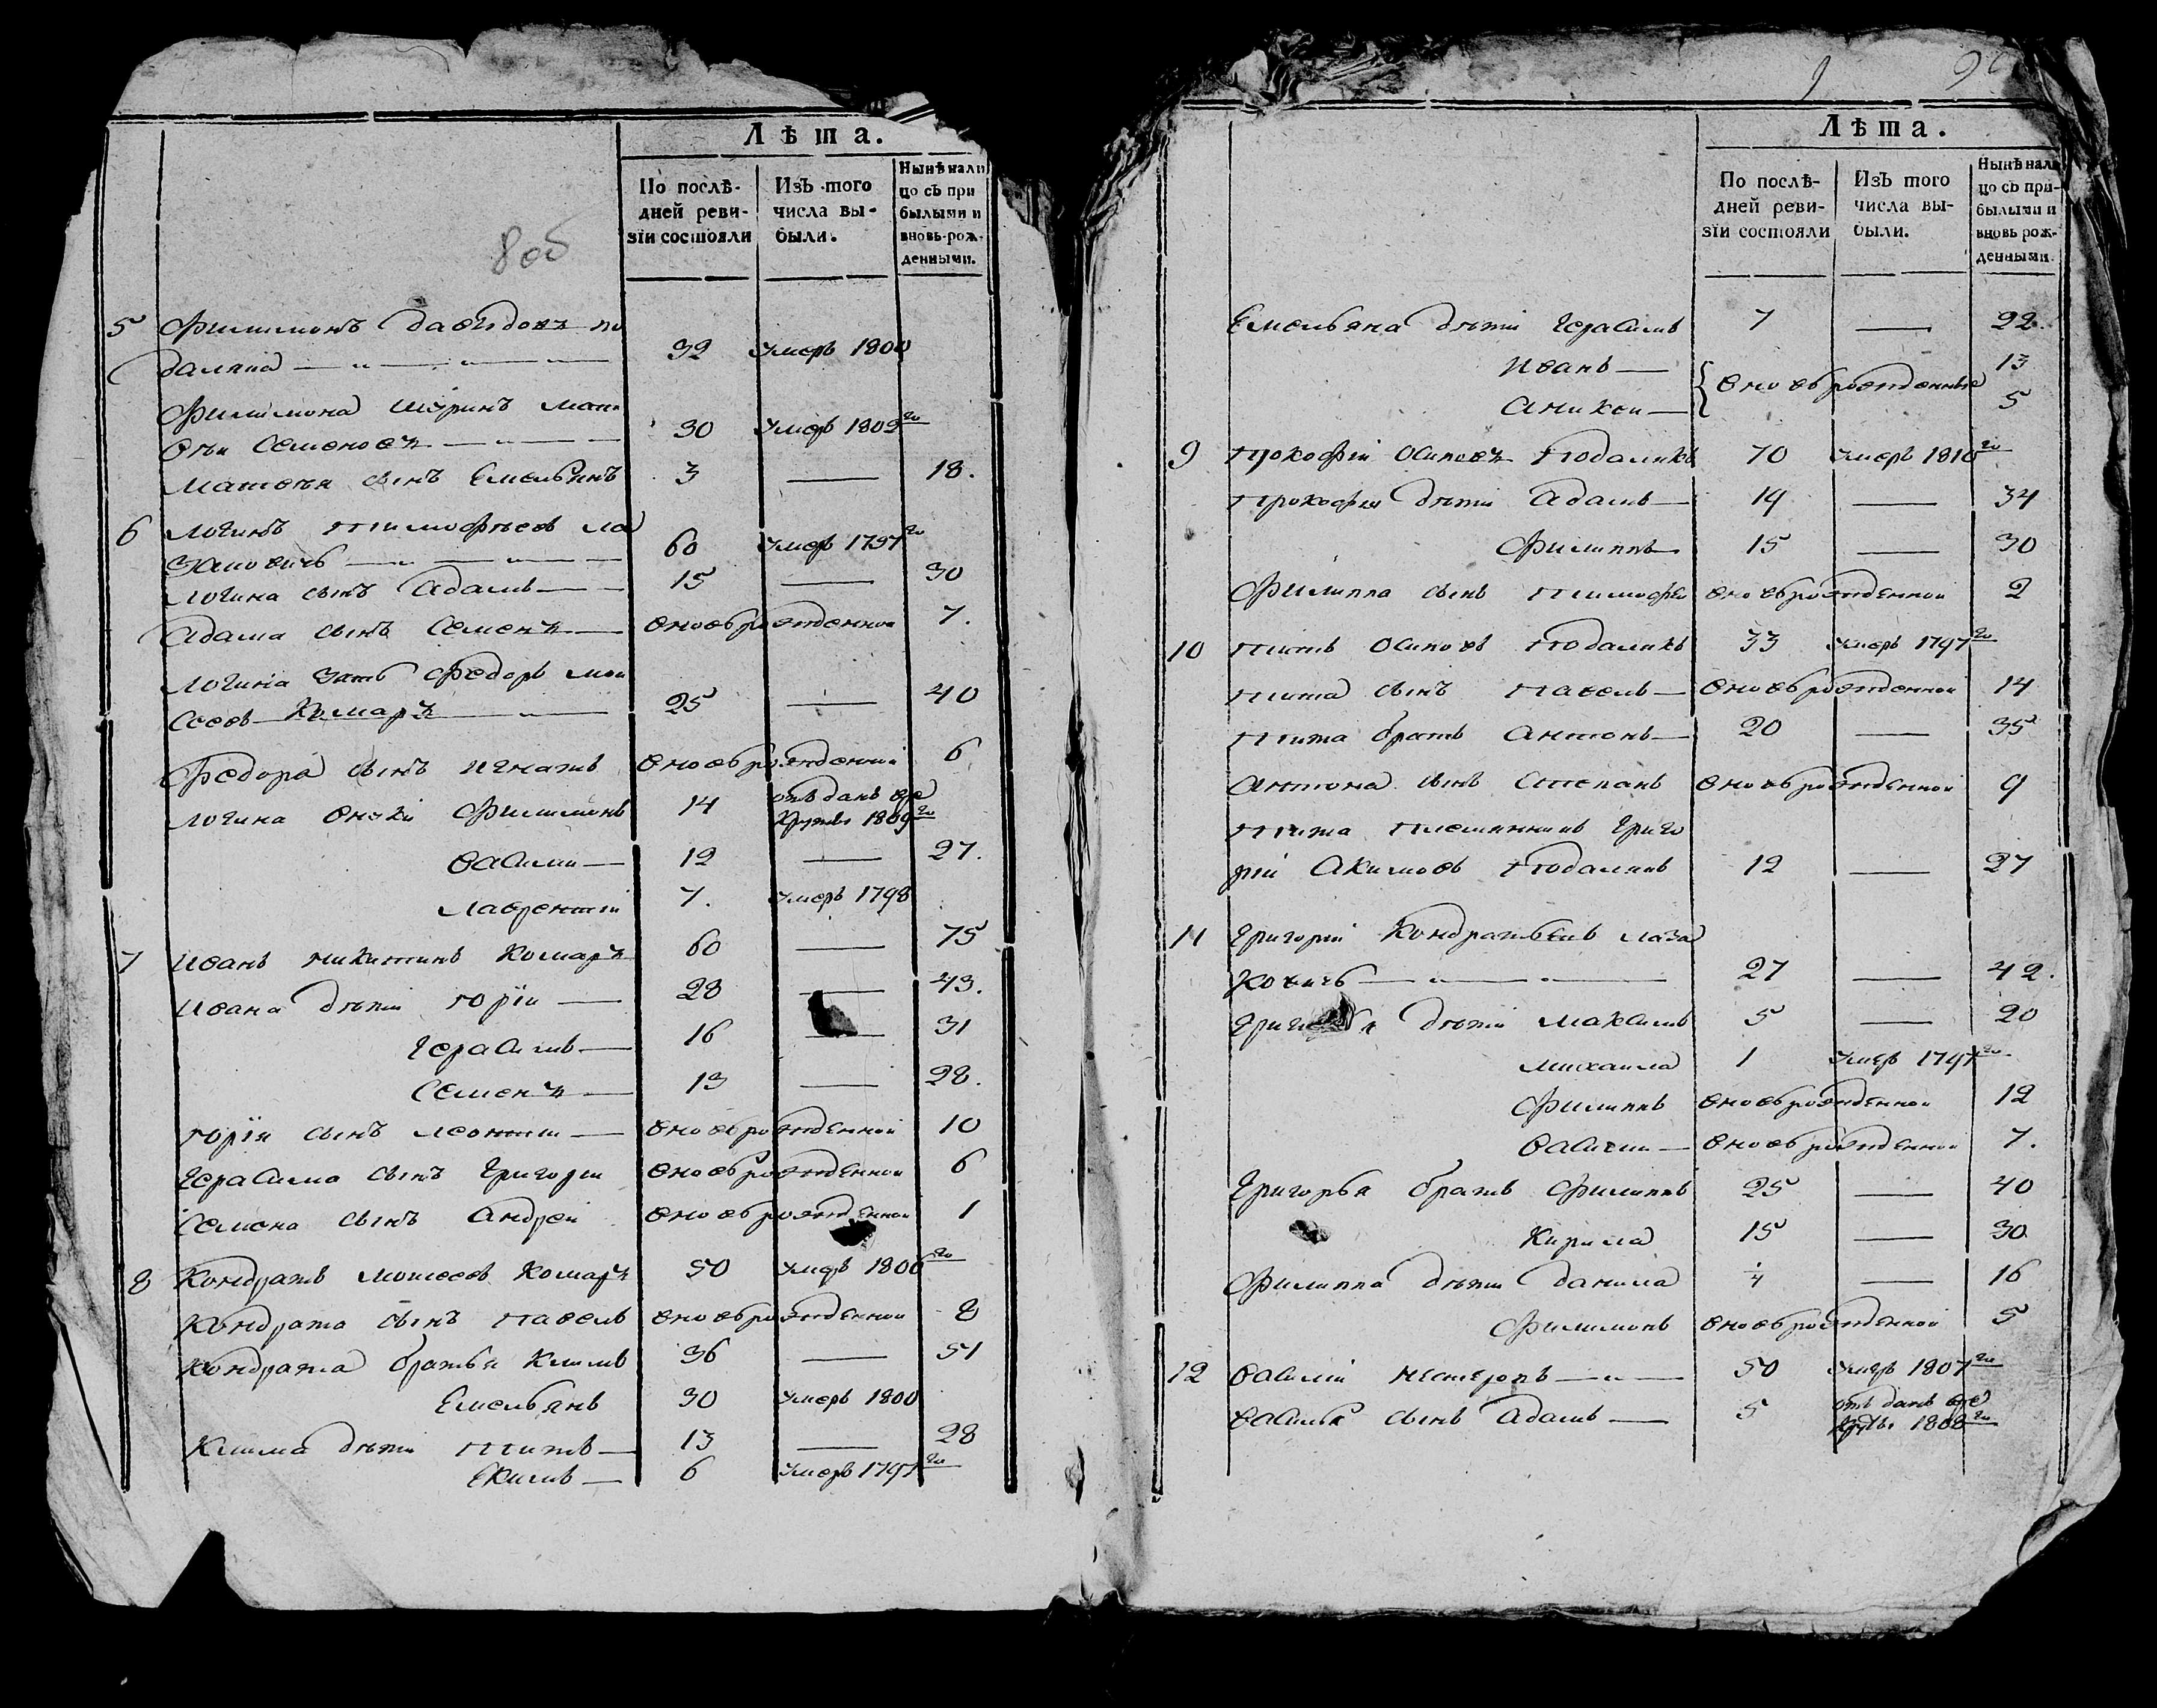 8 об
Лѣта.
По послѣдней ревизіи состояли
Изъ того числа выбыли.
Нынѣ налицо съ прибылыми и вновь рожденными.
5 Филимонъ Давыдовъ По
далякъ 32 умеръ 1800
Филимона шуринъ Мат
вѣи Семеновъ 30 умеръ 1802го
Матвѣя сынъ Емельянъ 3 — 18.
6 Логинъ Тимофѣевъ Ла
30 60 умеръ 1797го
Логина сынъ Адамъ — 15 — 30
Адама сынъ Семенъ — вновь рожденной 7.
Логина зять Федоръ Мои
сеевъ Комаръ 25 — 40
Федора сынъ Игнатъ вновь рожденной 6
Логина внуки Филимонъ 14 отъданъ вре
круты 1809го
Василии — 12 — 27.
Лаврентіи 7. умеръ 1798
7 Иванъ Никитинъ Комаръ 60 — 75
Ивана дѣти Юріи — 28 — 43.
Герасимъ — 16 — 31
Семенъ — 13 — 28.
Юрія сынъ Леонтии — вновь рожденной 10
Герасима сынъ Григории вновь рожденной 6
Семена сынъ Андреи вновь рожденной 1
8 Кондратъ Моисеевъ Комаръ 50 умеръ 1806го
Кондрата сынъ Павелъ вновь рожденной 8
Кондрата братья Климъ 36 — 51
Емельянъ 30 умеръ 1800
Клима дѣти Титъ — 13 — 28
Екимъ — 6 умеръ 1797го
9
Лѣта.
По послѣдней ревизіи состояли
Изъ того числа выбыли.
Нынѣ налицо съ прибылыми и вновь рожденными.
Емельяна дѣти Герасимъ 7 — 22.
Иванъ — 13
вновь рожденные
Аникеи — 5
9 Прокофіи Осиповъ Подалякъ 70 умеръ 1810го
Прокофия дѣти Адамъ — 19 — 34
Филиппъ — 15 — 30
Филиппа сынъ Тимофеи вновь рожденной 2
10 Титъ Осиповъ Подалякъ 33 умеръ 1797го
Тита сынъ Павелъ — вновь рожденной 14
Тита братъ Антонъ — 20 — 35
Антона сынъ Степанъ вновь рожденной 9
Тита племянникъ Григо
рии Акимовъ Подалякъ 12 — 27
11 Григории Кондратьевъ Лаза
ковичь 27 — 42.
Григорья дѣти Максимъ 5 — 20
Михаила 1 умеръ 1797го
Филиппъ вновь рожденной 12
Василии — вновь рожденной 7.
Григорья братъ Филиппъ 25 — 40
Кирила 15 — 30.
Филиппа дѣти Данила 1/4 — 16
Филимонъ вновь рожденной 5
12 Василіи Нестеровъ 50 умеръ 1807го
Василья сынъ Адамъ — 5 отъданъ вре
круты 1808го